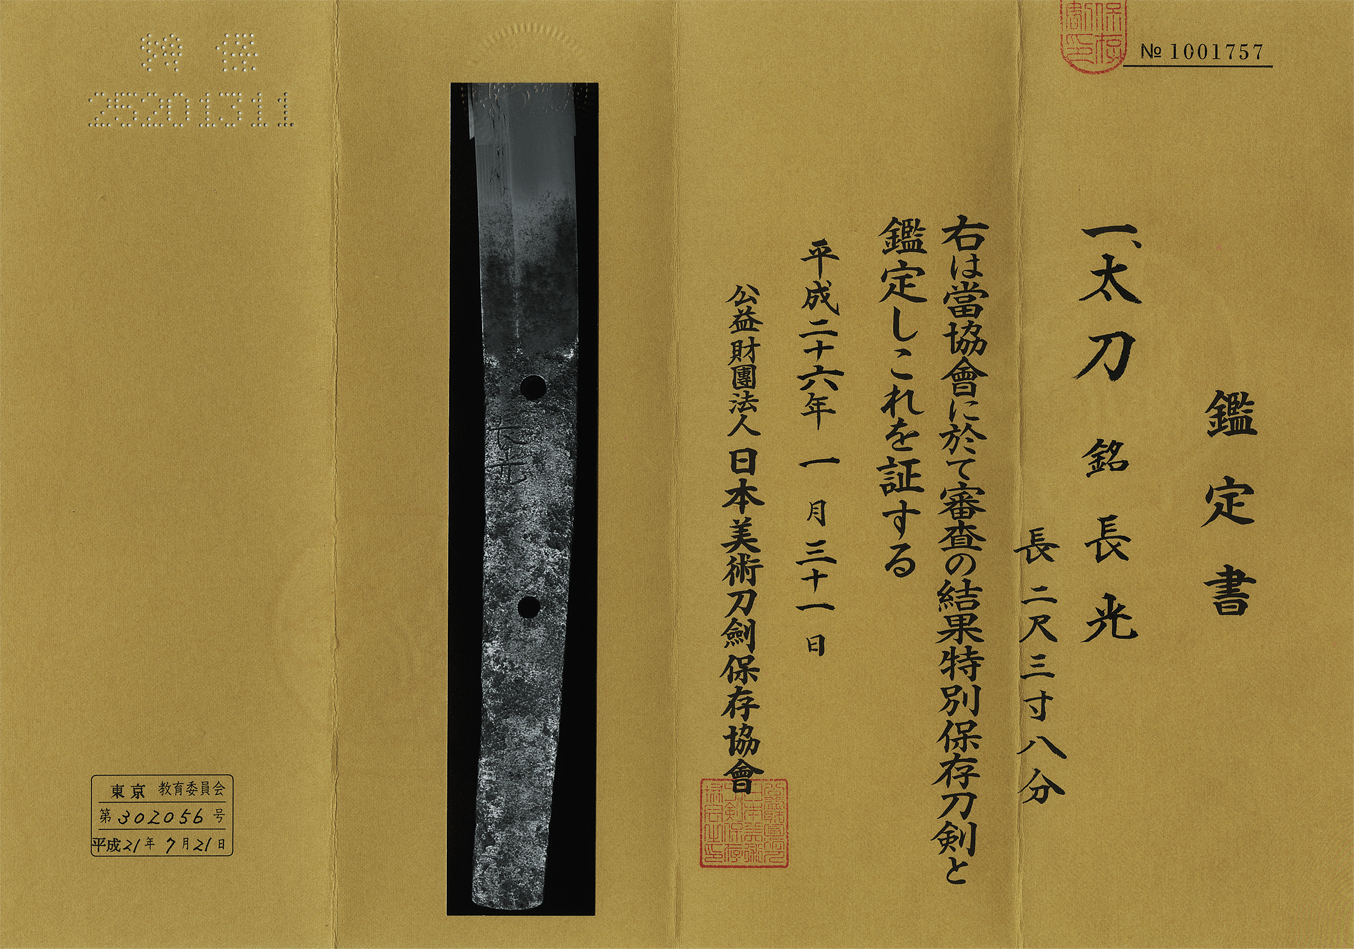 № 1001757
鑑定書
一、太刀 銘 長光
長二尺三寸八分
右は當協會に於て審査の結果特別保存刀剣と
鑑定しこれを証する
平成二十六年一月三十一日
公益財團法人日本美術刀劍保存協會
特保
25201311
東京 教育委員会
第302056号
平成21年7月21日